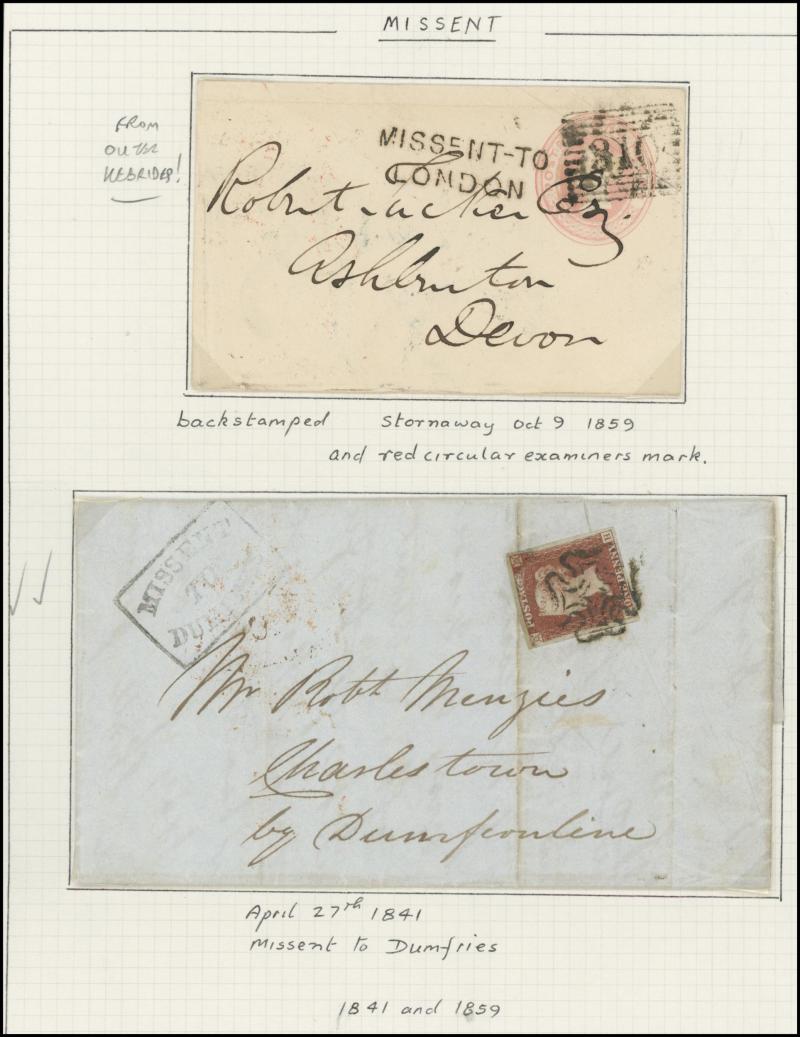 MISSENT
FROM
OUTER
HEBRIDES!
MISSENT-TO
LONDON
Robert Tucker Esq.
Ashburton
Devon
backstamped Stornaway Oct 9 1859
and red circular examiners mark.
MISSENT
TO
POSTAGE
ONE PENNY
Mr Robt Menzies
Charlestown
by Dumfeonline
April 27th 1841
Missent to Dumfries
1841 and 1859